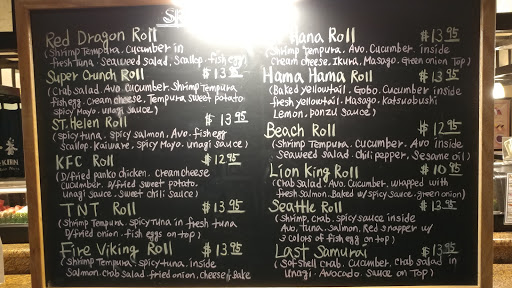 Red Dragon Roll
(Shrimp Tempura. Cucumber in
fresh tuna. Seaweed salad. Scallop. fish egg)
Super Crunch Roll $13.95
(Crab salad. Avo. Cucumber. Shrimp Tempura
fish egg. Cream cheese. Tempura sweet potato
spicy Mayo. unagi sauce)
ST. Helen Roll $13.95
(spicy tuna. spicy salmon. Avo. fish egg
Scallop. Kaiware. spicy Mayo. unagi sauce)
KFC Roll $12.95
(D/fried panko chicken. Cream cheese
Cucumber. D/fried sweet potato.
Unagi sauce. Sweet chili Sauce)
TNT Roll $13.95
(Shrimp Tempura. spicy tuna in fresh tuna
D/fried onion. fish eggs on top)
Fire Viking Roll $13.95
(Shrimp Tempura. spicy tuna. inside
Salmon. crab salad. fried onion. cheese & Bake
Hana Roll $13.95
(Shrimp Tempura. Avo. Cucumber. inside
Cream cheese. Ikura. Masago. Green onion Top)
Hama Hama Roll $13.95
(Baked yellowtail. Gobo. Cucumber inside
fresh yellowtail. Masago. Katsuobushi
Lemon. ponzu Sauce)
Beach Roll $12.95
(Shrimp Tempura. Cucumber. Avo inside
Seaweed Salad. chili pepper. Sesame oil)
Lion King Roll $10.95
(Crab Salad. Avo. Cucumber. wrapped with
fresh Salmon. Baked w/ spicy Sauce. green onion)
Seattle Roll $13.95
(shrimp. Crab. spicy sauce inside
Avo. tuna. Salmon. Red snapper w/
3 colors of fish egg on top)
Last Samurai $13.95
(Soft shell crab. Cucumber. Crab Salad in
Unagi. Avocado. Sauce on Top)